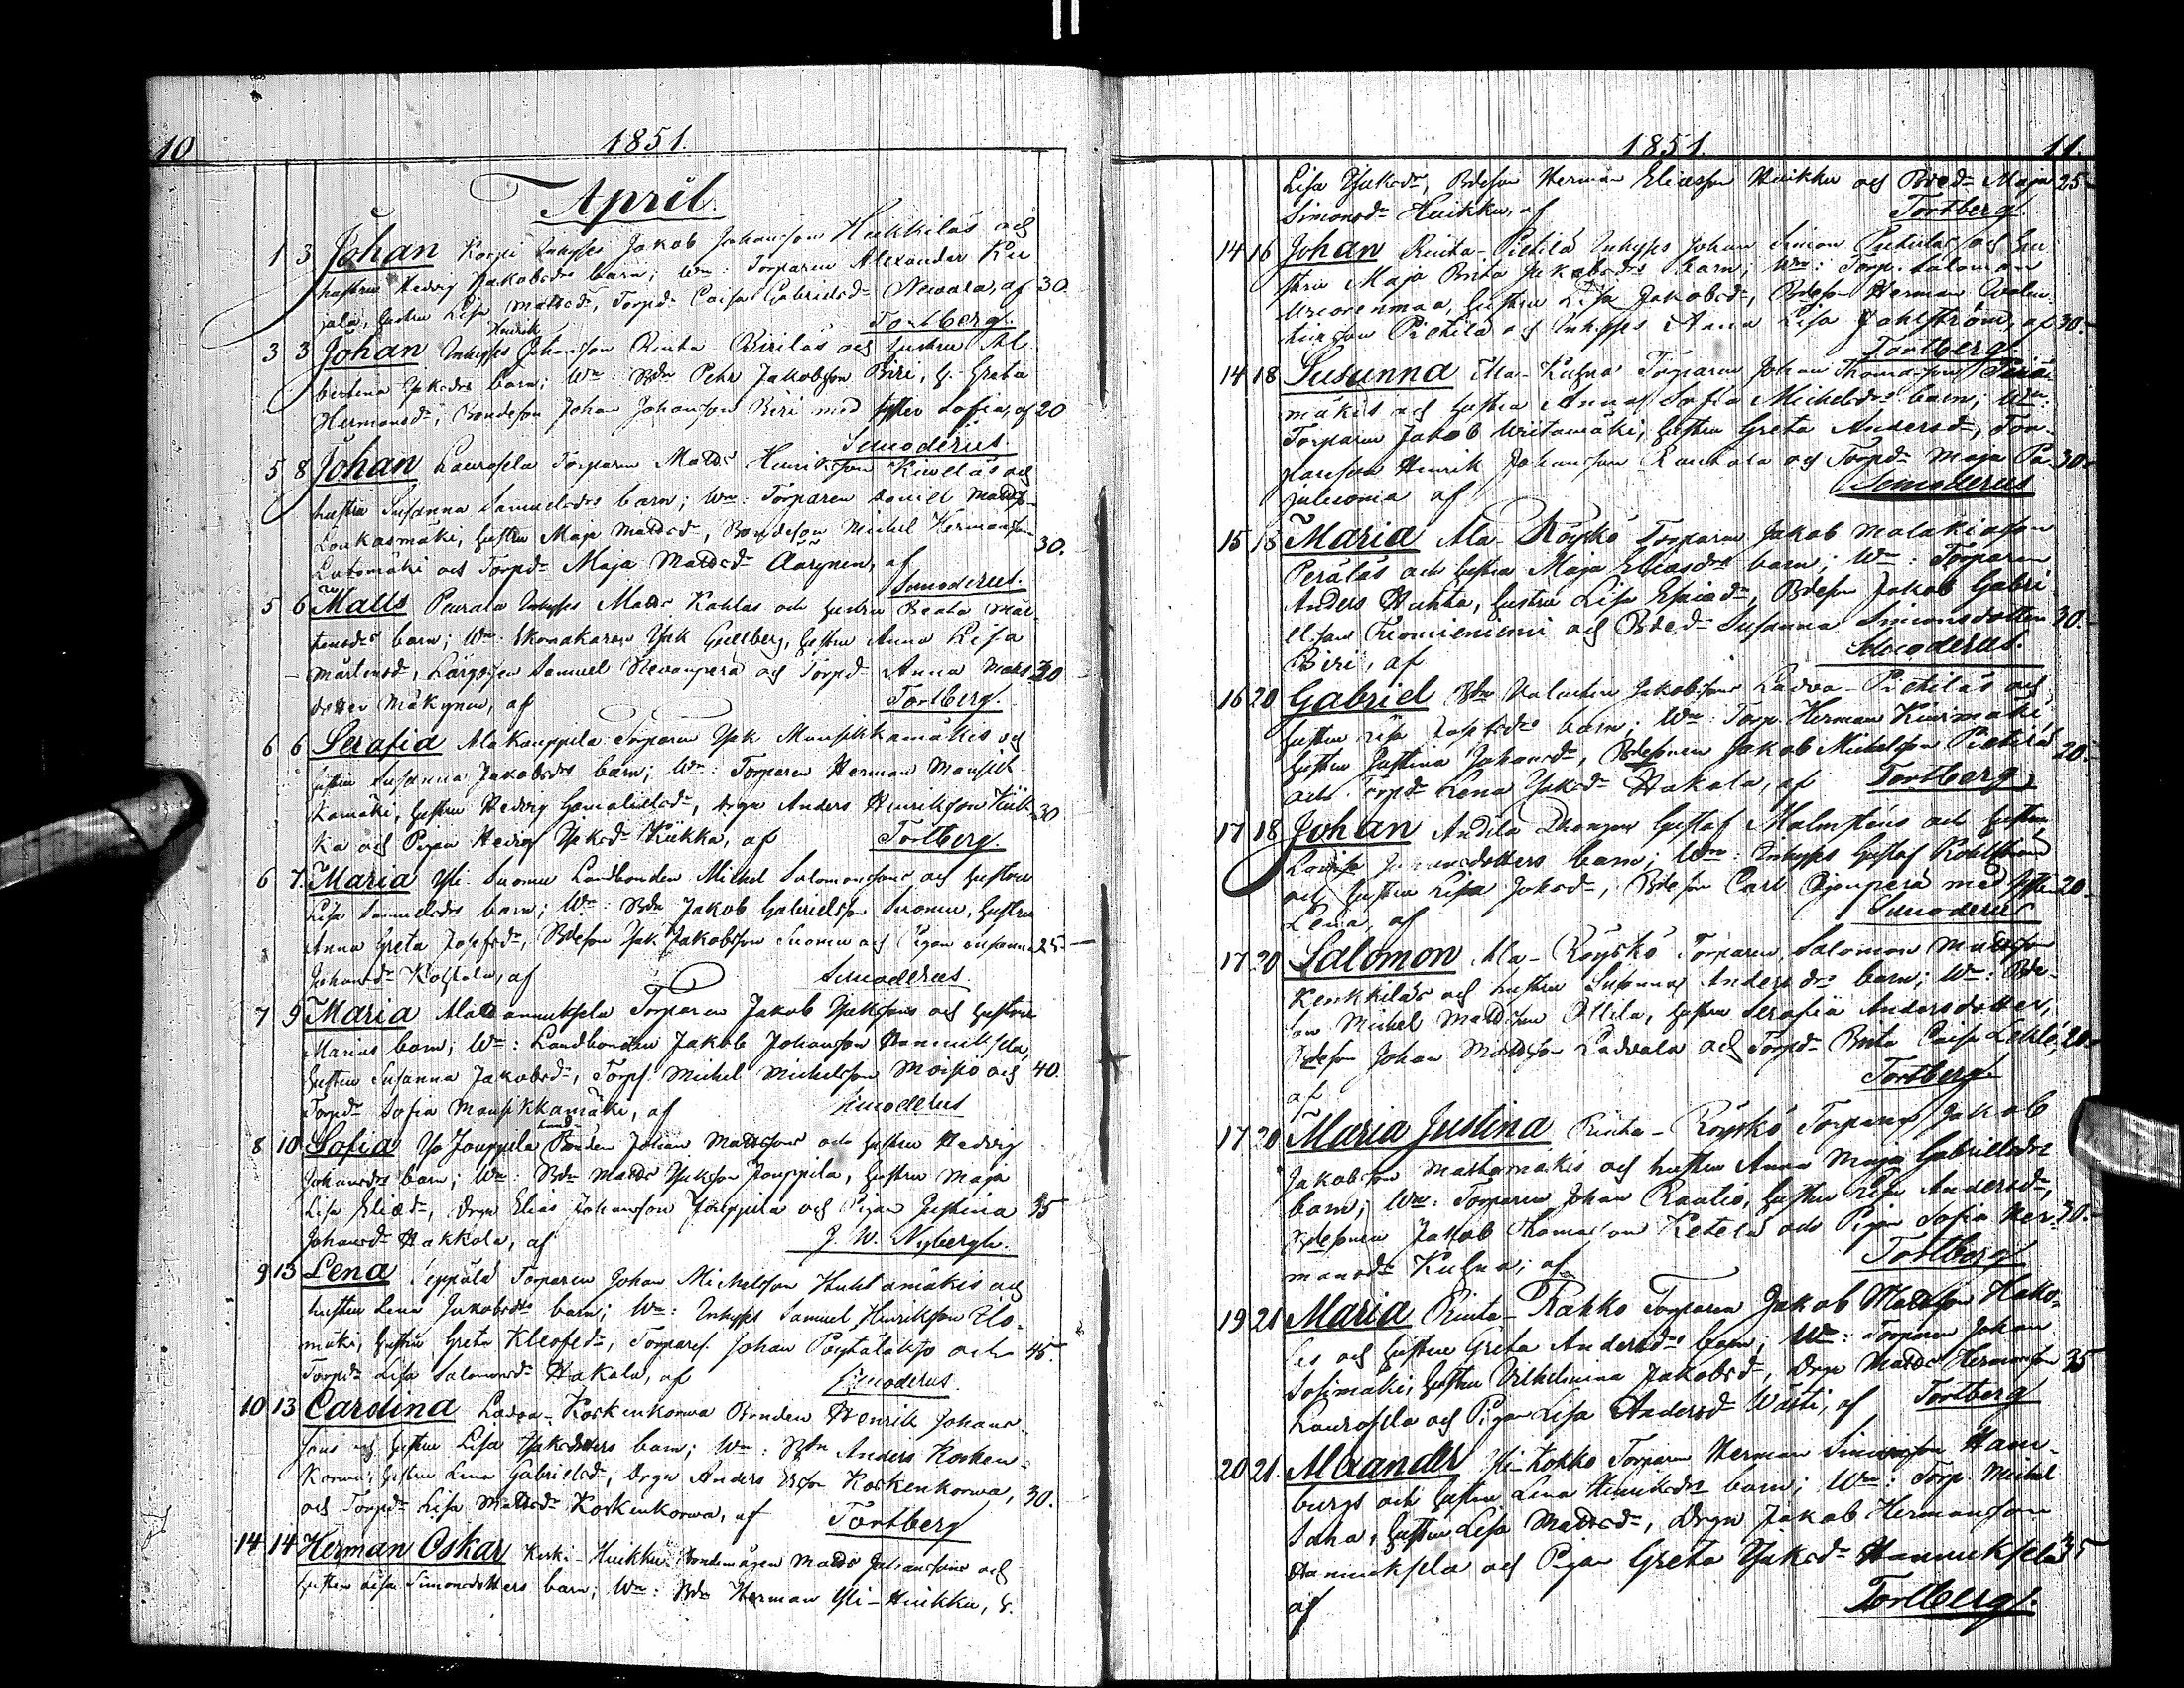 10 1851.
April.
1 3 Johan Korpi Inhyses Jakob Johansson Hukkilas och
hustrun Hedvig Jakobsdrs barn; Wn: Torparen Alexander Ku
jala, hustru Lisa Mattsdr, Torpdr Caisa Gabrielsdr Newala, af 30.
Tortberg.
3 3 Johan Inhyses Henrik Johansson Rinta-Birilas och hustru Al
bertina Jakobsdrs barn; Wn: Bdn Pehr Jakobsson Biri, h. Greta
Hermansdr, Bondeson Johan Johansson Biri med syster Sofia, af 20
Simoderus.
5 8 Johan Laurosela Torparen Matts Henriksson Kiwelas och
hustru Susanna Samuelsdrs barn; Wn: Torparen Daniel Mattsson
Loukasmäki, hustru Maja Mattsdr, Bondeson Michel Hermansson 30.
Luttomäki och Torpdr Maja Mattsdr Aarynen, af
Simoderus.
5 6 Matts Peurala Inhyses Matts Kohlas och hustru Beata Mår
tensdrs barn; Wn: Skomakaren Jak Gullberg, hustru Anna Lisa
Mårtensd, Lärgossen Samuel Newanperä och Torpdr Anna Matts 30
dotter Mäkynen, af Tortberg.
6 6 Serafia Alakauppila Torparen Jak Mansikkamäkis och
hustru Susanna Jakobsdrs barn; Wn: Torparen Herman Mansik
kamäki, hustru Hedvig Gamalielsdr, Drgn Anders Henriksson Kiik 30
ka och Pigan Hedvig Jakdr Kiikka, af Tortberg.
6 7 Maria Yli-Suomu Landbonden Michel Salomonssons och hustru
Lisa Samuelsdrs barn; Wn: Bdn Jakob Gabrielsson Suomu, hustru
Anna Greta Josefsdr, Bdeson Jak Jakobsson Suomu och Pigan Susanna 25
Johansdr Kossola, af Simoderus.
7 9 Maria Ala Hannuksela Torparen Jakob Jakssons och hustru
Marias barn; Wn: Landbonden Jakob Johansson Hannuksela,
hustru Susanna Jakobsdr, Torps. Michel Michelsson Moisio och 40.
Torpdr Sofia Mansikkamäki, af Simoderus
8 10 Sofia Yo Jouppila Land-Bonden Johan Mattssons och hustru Hedvig
Johansdrs barn; Wn: Bdn Matts Jaksson Jouppila, hustru Maja
Lisa Eliædr, Drgn Elias Johansson Jouppila och Pigan Justina 35
Johansdr Hakkola, af J. W. Nybergh.
9 13 Lena Seppälä Torparen Johan Michelsson Huhtamäkis och
hustru Lena Jakobsdrs barn; Wn: Inhyses Samuel Henriksson Elo-
mäki, hustru Greta Kleofædr, Torpares. Johan Pöytälakso och 45.
Torpdr Lisa Salomonsdr Hakala, af Simoderus.
10 13 Carolina Ladva-Koskenkorwa Bonden Henrik Johans-
sons och hustru Lisa Jaksdotters barn; Wn: Bdn Anders Kosken-
korwa, hustru Lena Gabrielsdr, Drgn Anders Koskenkorwa, 30.
och Torpdr Lisa Mattsdr Koskenkorwa, af Tortberg
14 14 Herman Oskar Keski-Huikku Bondemågen Matts Johanssons och
hustru Lisa Simonsdotters barn; Wn: Bdn Herman Yli-Huikku, h.
1851. 11.
Lisa Jaksdr, Bdeson Herman Eliasson Huikku och Bdedr Maja 25
Simonsdr Huikku, af Tortberg.
14 16 Johan Rinta-Pietilä Inhyses Johan Simon Pietilas och hu
stru Maja Brita Jakobsdrs barn; Wn: Torp. Salomon
Wuorenmaa, hustru Lisa Jakobsdr, Bdeson Herman Valen-
tinsson Pietilä och Inhyses Anna Lisa Fahlström, af 30.
Tortberg
14 18 Susanna Ala-Kuhna Torparen Johan Thomasson Perä-
mäkis och hustru Anna Sofia Michelsdrs barn; Wn:
Torparen Jakob Wiitamäki, hustru Greta Andersdr, Tor-
pareson Henrik Johansson Rautala och Torpdr Maja Pa- 30.
juluoma af Simoderus
15 18 Maria Ala-Röyskö Torparen Jakob Malakiasson
Perälas och hustru Maja Eliasdrs barn; Wn: Torparen
Anders Huhta, hustru Lisa Esaiadr, Bdeson Jakob Gabri
elsson Tuomiiniemi och Bdedr Susanna Simonsdotter 30.
Biri, af Simoderus.
16 20 Gabriel Bdn Valentin Jakobssons Ladva-Pietilas och
hustru Lisa Josefsdrs barn; Wn: Torp. Herman Kiwimäki,
hustru Justina Johansdr, Bdesonen Jakob Michelsson Pietilä 20.
och Torpdr Lena Jaksdr Hakala, af Tortberg
17 18 Johan Andila Drengen Gustaf Malmstens och hustru
Lovisa dotters barn; Wn: Inhyses Gustaf Kohlström
och hustru Lisa Jaksdr, Bdeson Carl Ojanperä med syster 20.
Lena, af Simoderus
17 20 Salomon Ala-Röyskö Torparen Salomon Mattsson
Kenkkilas och hustru Susanna Andersdrs barn; Wn: Bde-
son Michel Mattsson Ollila, hustru Serafia Andersdotter,
Bdeson Johan Mattsson Ladvala och Torpdr Brita Caisa Lehtö, 20.
af Tortberg
17 20 Maria Justina Rinta-Röyskö Torparen Jakob
Jakobsson Mastomäkis och hustru Anna Maja Gabrielsdrs
barn; Wn: Torparen Johan Rautio, hustru Lisa Andersdr,
Bdesonen Jakob Thomasson Ketelä och Pigan Sofia Her- 20.
mansdr Kuhna, af Tortberg
19 21 Maria Rinta-Rahko Torparen Jakob Mattsson Hako-
les och hustru Greta Andersdrs barn; Wn: Torparen Johan
Sosimäki, hustru Vilhelmina Jakobsdr, Drgn Matts Hermansson 35
Laurosela och Pigan Lisa Andersdr Wasti, af Tortberg
20 21. Alexander Yli-Kokko Torparen Herman Simonsson Ham-
burgs och hustru Lena Henriksdrs barn; Wn: Torp. Michel
Saha, hustru Lisa Mattsdr, Drgn Jakob Hermansson
Hannuksela och Pigan Greta Jaksdr Hannuksela 35
af Tortberg.